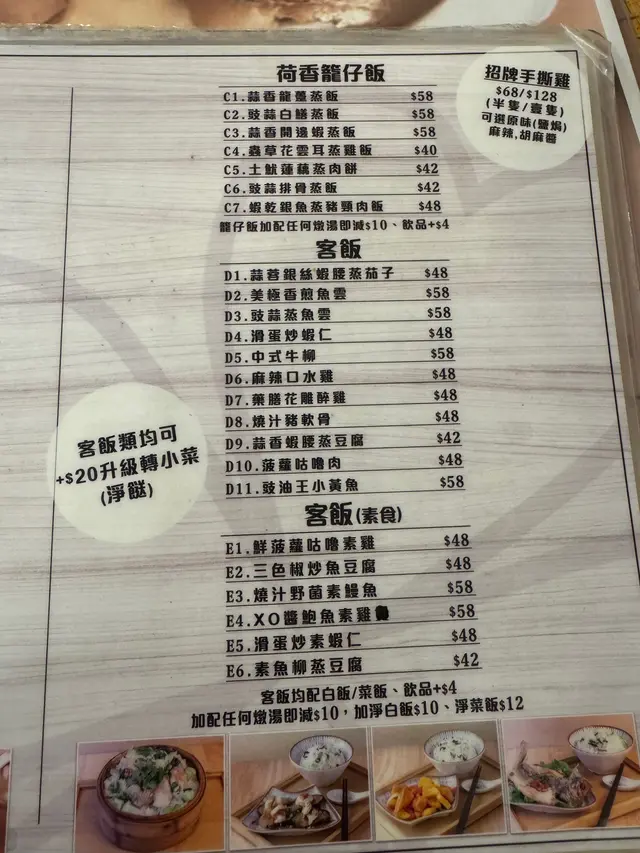 荷香籠仔飯
C1.蒜香龍躉蒸飯 $58
C2.豉蒜白鱔蒸飯 $58
C3.蒜香開邊蝦蒸飯 $58
C4.蟲草花雲耳蒸雞飯 $40
C5.土魷蓮藕蒸肉餅 $42
C6.豉蒜排骨蒸飯 $42
C7.蝦乾銀魚蒸豬頸肉飯 $48
籠仔飯加配任何燉湯即減$10、飲品+$4
招牌手撕雞
$68/$128
(半隻/壹隻)
可選原味(鹽焗)
麻辣,胡麻醬
客飯
D1.蒜蓉銀絲蝦腰蒸茄子 $48
D2.美極香煎魚雲 $58
D3.豉蒜蒸魚雲 $58
D4.滑蛋炒蝦仁 $48
D5.中式牛柳 $58
D6.麻辣口水雞 $48
D7.藥膳花雕醉雞 $48
D8.燒汁豬軟骨 $48
D9.蒜香蝦腰蒸豆腐 $42
D10.菠蘿咕嚕肉 $48
D11.豉油王小黃魚 $58
客飯類均可
+$20升級轉小菜
(淨餸)
客飯(素食)
E1.鮮菠蘿咕嚕素雞 $48
E2.三色椒炒魚豆腐 $48
E3.燒汁野菌素鰻魚 $58
E4.XO醬鮑魚素雞 $58
E5.滑蛋炒素蝦仁 $48
E6.素魚柳蒸豆腐 $42
客飯均配白飯/菜飯、飲品+$4
加配任何燉湯即減$10，加淨白飯$10、淨菜飯$12